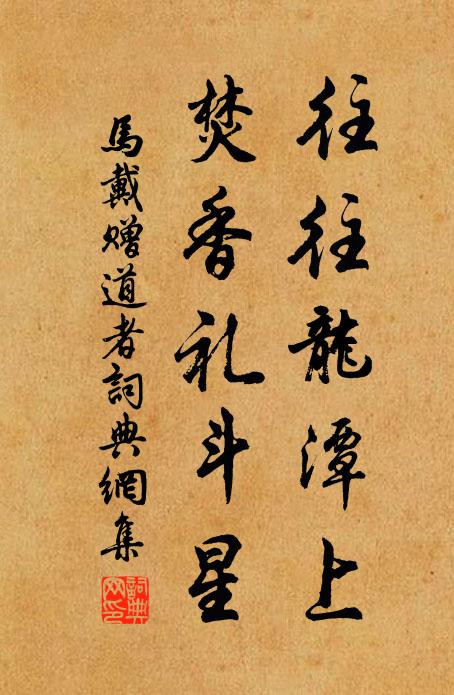 往往龍潭上
焚香礼斗星
馬戴贈道者詞典網集
詞典
网印